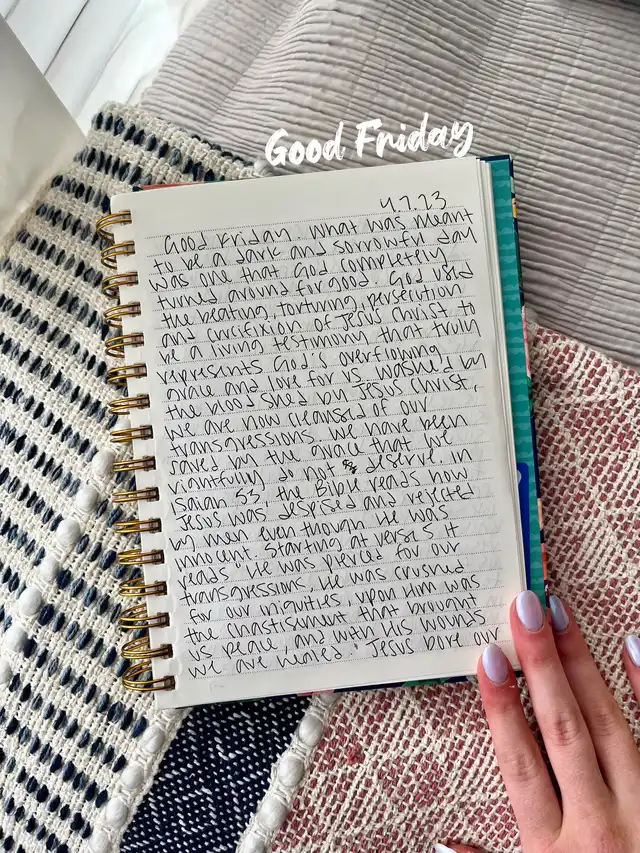 Good Friday
4.7.23
Good Friday. What was meant
to be a dark and sorrowful day
was one that God completely
turned around for good. God used
the beating, torturing, persecution
and crucifixion of Jesus Christ to
be a living testimony that truly
represents God's overflowing
grace and love for us. Washed by
the blood shed by Jesus Christ,
we are now cleansed of our
transgressions. We have been
saved by the grace that we
rightfully do not deserve. In
Isaiah 53, the Bible reads how
Jesus was despised and rejected
by men even though He was
innocent. Starting at verse 5 it
reads "He was pierced for our
transgressions, He was crushed
for our iniquities, upon Him was
the chastisement that brought
us peace, and with His wounds
we are healed." Jesus bore our